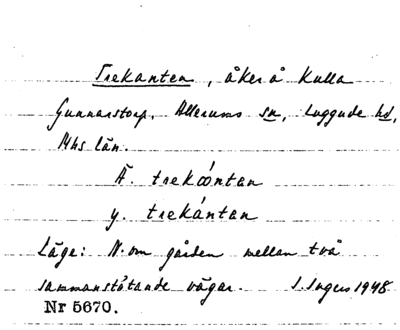 Trekanten, åker å Kulla
Gunnarstorp, Allerums sn, Luggude hd,
Mhs län.
Ä. trekóntan
y. trekántan
Läge: N. om gården mellan två
sammanstötande vägar. I. Ingers 1948
Nr 5670.